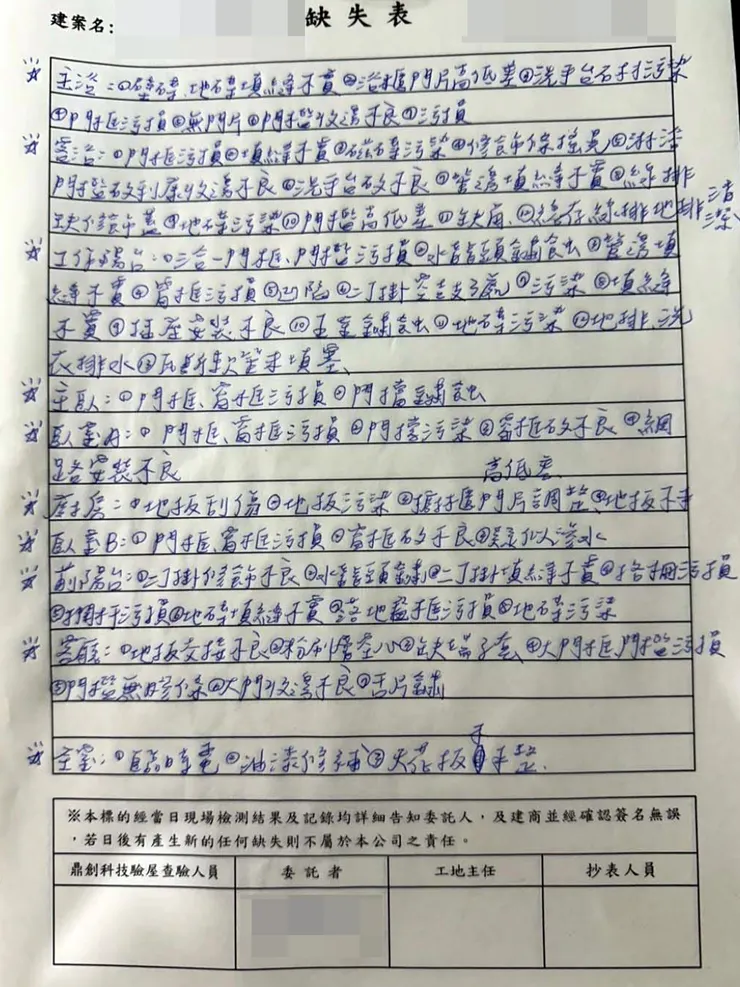 缺失表
建案名:
主浴:①壁磚、地磚填縫不實②浴櫃門片高低差③洗手台石材污染
④門框污損⑤無門片⑥門檻收邊不良⑦污損
客浴:①門框污損②填縫不實③磁磚污染④修飾條搖晃⑤淋浴
門檻矽利康收邊不良⑥洗手台矽不良⑦管邊填縫不實⑧線排
缺修飾蓋⑨地磚污染⑩門檻高低差⑪缺角⑫線排地排清潔
工作陽台:①三合一門框、門檻污損②水龍頭鏽蝕③管邊填
縫不實④窗框污損⑤凹陷⑥二丁掛 ⑦污染⑧填縫
不實⑨插座安裝不良⑩五金鏽蝕⑪地磚污染⑫地排、洗
衣排水⑬瓦斯軟管未填塞
主臥:①門框、窗框污損②門擋鏽蝕
臥室A:①門框、窗框污損②門擋污染③窗框矽不良④網
路安裝不良
高低差
廚房:①地板刮傷②地板污染③櫥櫃門片調整④地板不平
臥室B:①門框、窗框污損②窗框矽不良③疑似滲水
前陽台:①二丁掛修飾不良②水龍頭鏽③二丁掛填縫不實④格柵污損
⑤欄杆污損⑥地磚填縫不實⑦落地窗框污損⑧地磚污染
客廳:①地板交接不良②粉刷牆空心③缺端子套④大門框、門檻污損
⑤門檻無膠條⑥大門收邊不良⑦舌片鏽
全室:①臨時電②油漆修補③天花板不平整.
※本標的經當日現場檢測結果及記錄均詳細告知委託人,及建商並經確認簽名無誤
,若日後有產生新的任何缺失則不屬於本公司之責任。
鼎創科技驗屋查驗人員 委託者 工地主任 抄表人員